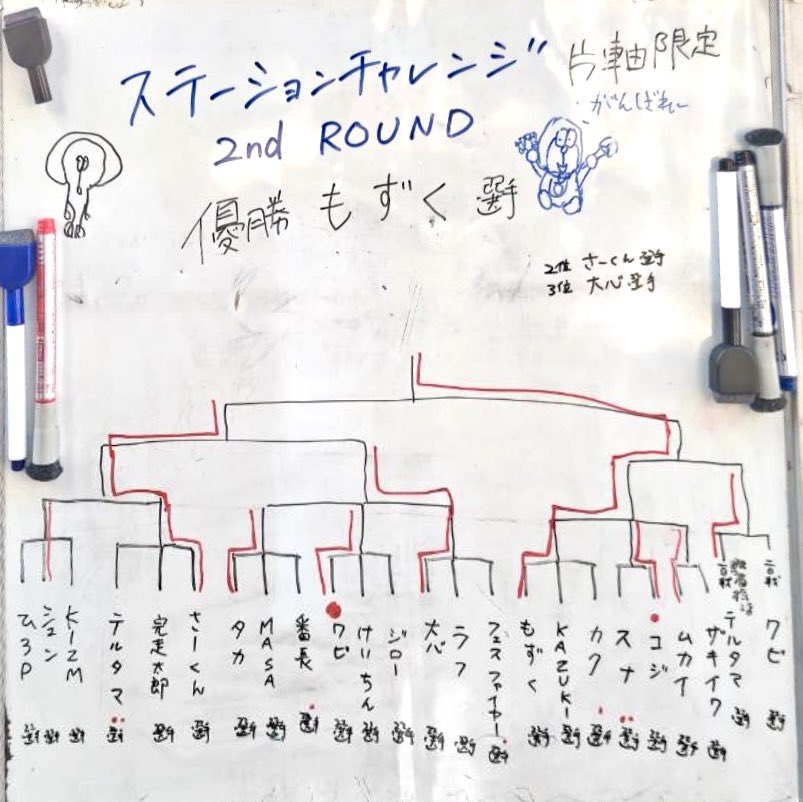 ステーションチャレンジ
片軸限定
がんばれー
2nd ROUND
優勝 もずく 選手
2位 さーくん 選手
3位 大心 選手
ひろP 選手
ジュン 選手
KIZM 選手
テルタマ 選手
完走太郎 選手
さーくん 選手
タカ 選手
MASA 選手
番長 選手
ワビ 選手
けいちん 選手
ジロー 選手
大心 選手
ラフ 選手
フェスファイヤー 選手
もずく 選手
KAZUKI 選手
カク 選手
スナ 選手
コジ 選手
ムカイ 選手
ザキイワ 選手
敗者復活
テルタマ 選手
ワビ 選手